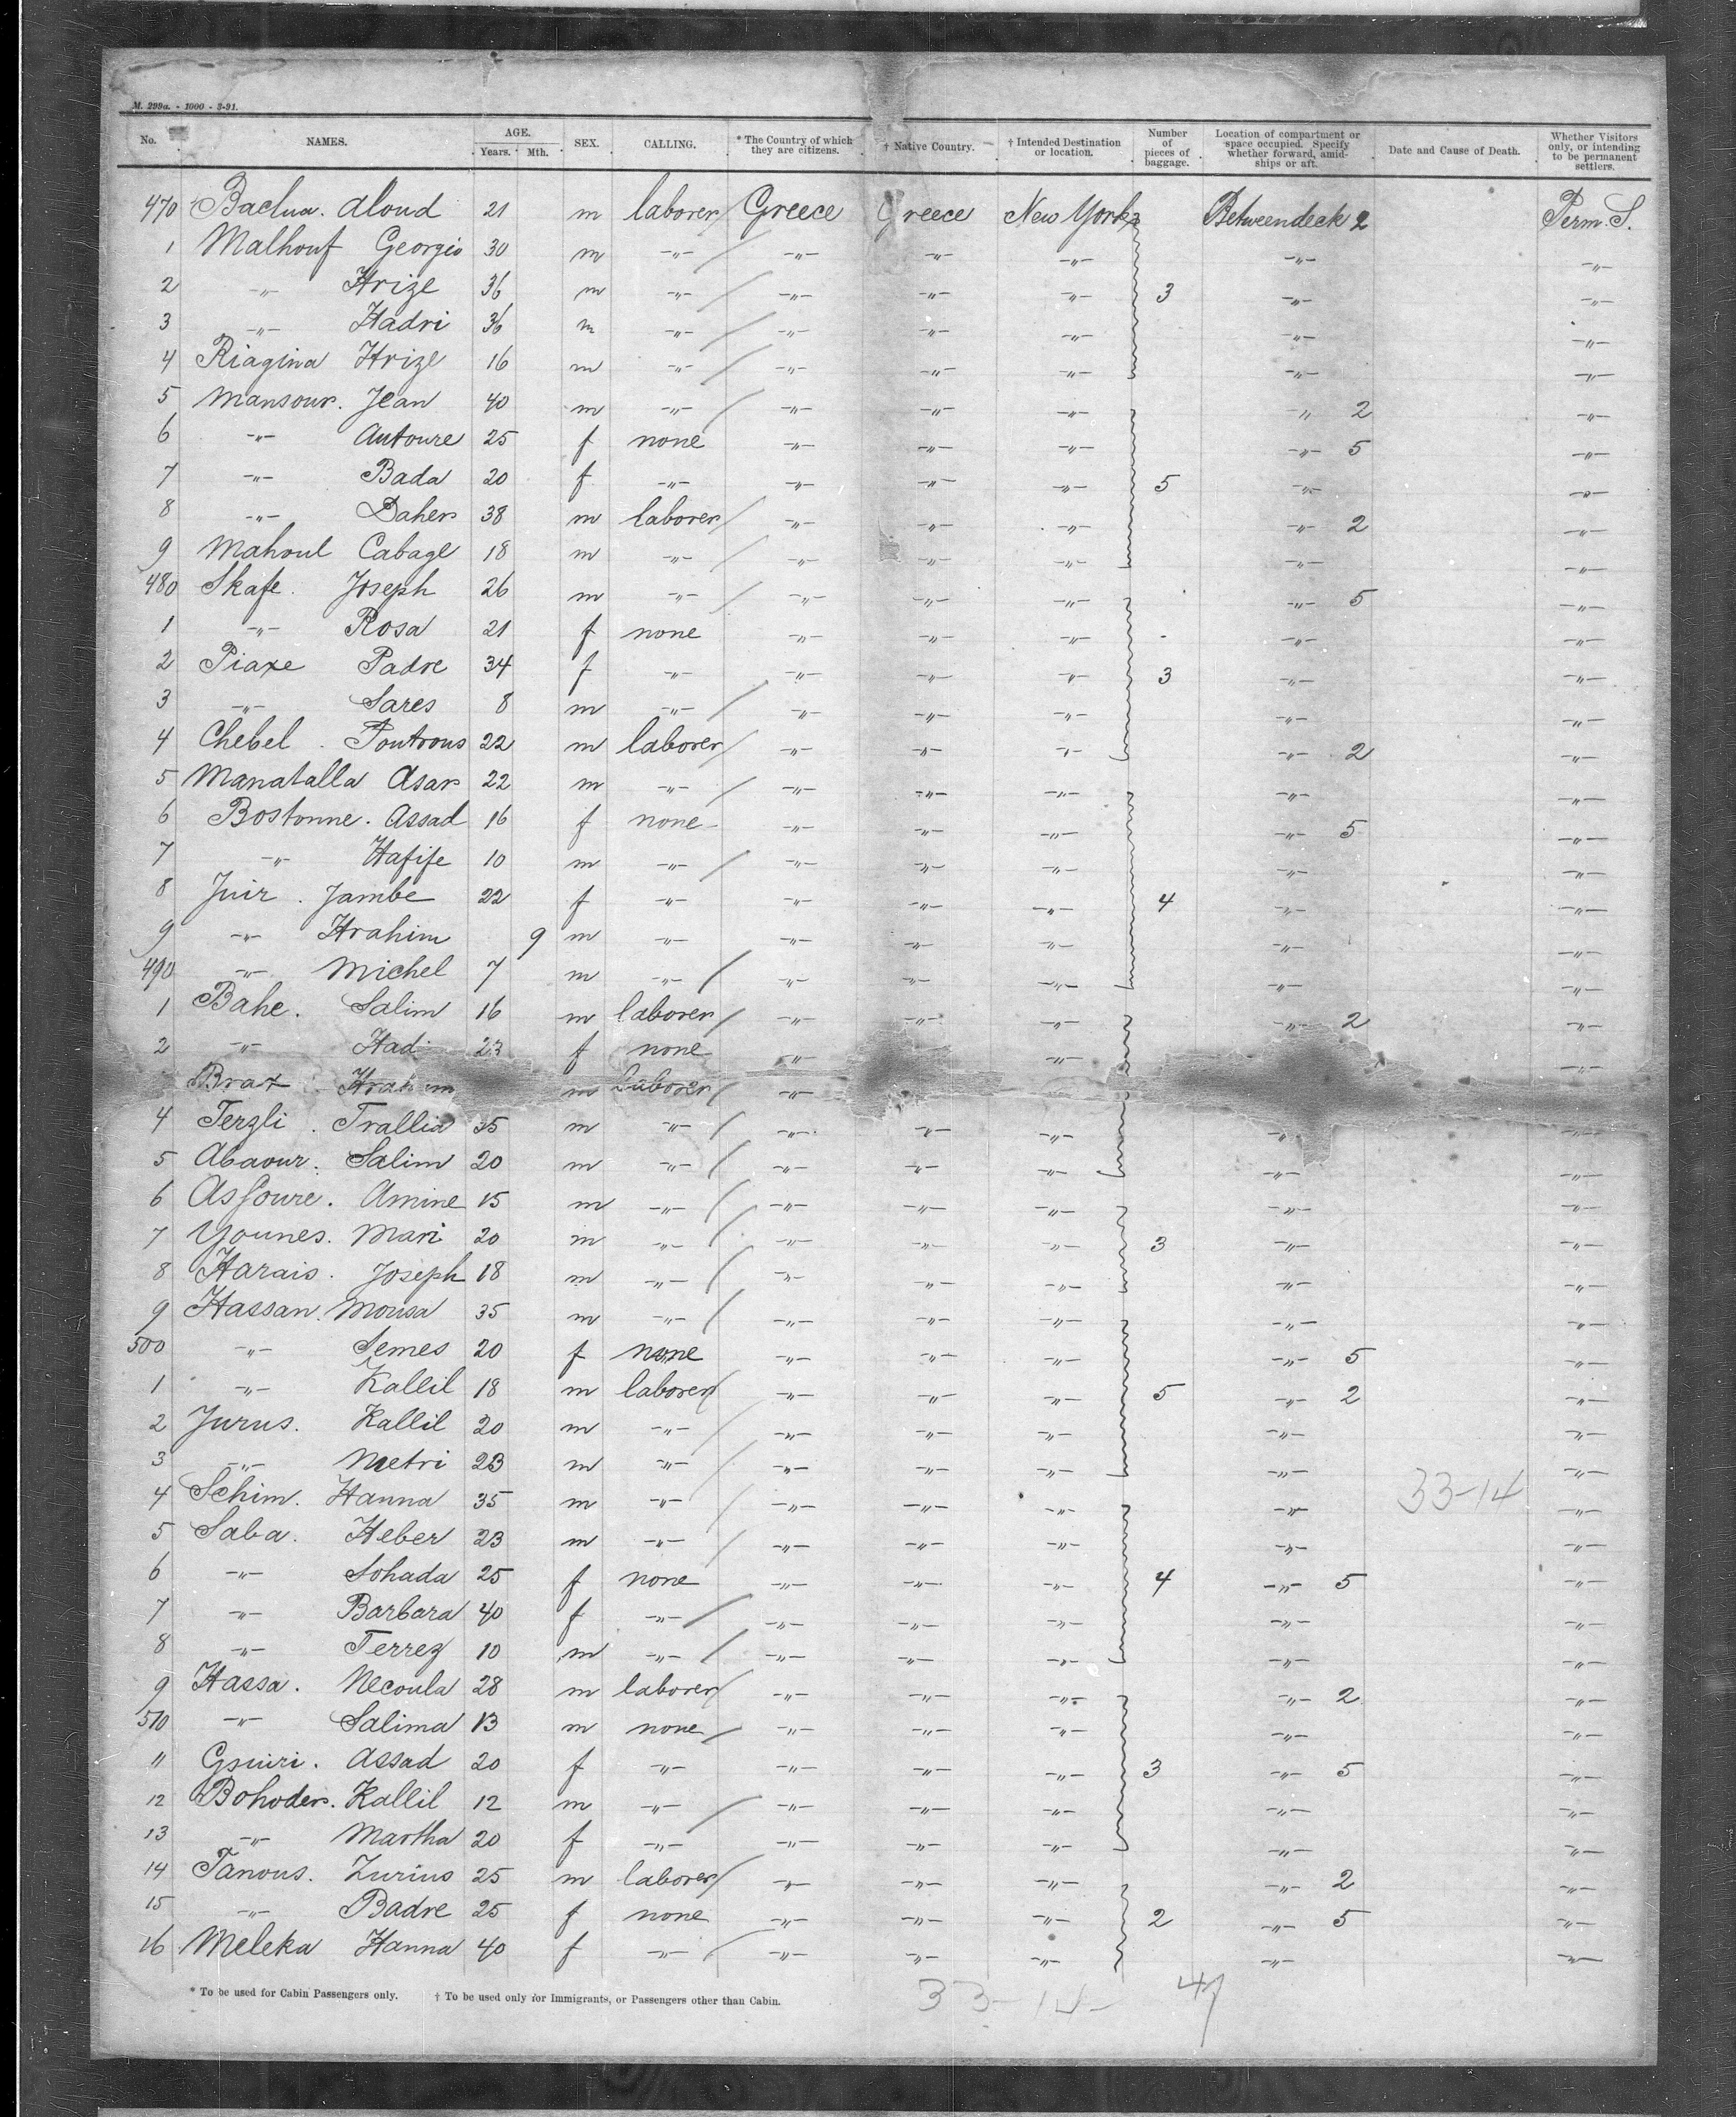 M. 299a. - 1000 - 3-91.
No. NAMES. AGE. Years. Mth. SEX. CALLING. * The Country of which they are citizens. † Native Country. † Intended Destination or location. Number of pieces of baggage. Location of compartment or space occupied. Specify whether forward, amidships or aft. Date and Cause of Death. Whether Visitors only, or intending to be permanent settlers.
470 Baclua. Aloud 21 m laborer Greece Greece New York Betweendeck 2 Perm. S.
1 Malhouf Georgio 30 m -"- -"- -"- -"- -"- -"-
2 -"- Hrize 36 m -"- -"- -"- -"- 3 -"- -"-
3 -"- Hadri 36 m -"- -"- -"- -"- -"- -"-
4 Riagina Hrize 16 m -"- -"- -"- -"- -"- -"-
5 Mansour. Jean 40 m -"- -"- -"- -"- " 2 -"-
6 -"- Antoure 25 f none -"- -"- -"- -"- 5 -"-
7 -"- Bada 20 f -"- -"- -"- -"- 5 -"- -"-
8 -"- Daher 38 m laborer -"- -"- -"- -"- 2 -"-
9 Mahoul Cabage 18 m -"- -"- -"- -"- -"- -"-
480 Skafe. Joseph 26 m -"- -"- -"- -"- -"- 5 -"-
1 -"- Rosa 21 f none -"- -"- -"- -"- -"-
2 Piaxe Padre 34 f -"- -"- -"- -"- 3 -"- -"-
3 -"- Sares 8 m -"- -"- -"- -"- -"- -"-
4 Chebel. Poutrous 22 m laborer -"- -"- -"- -"- 2 -"-
5 Manatalla Asar 22 m -"- -"- -"- -"- -"- -"-
6 Bostonne. Assad 16 f none -"- -"- -"- -"- 5 -"-
7 -"- Hafife 10 m -"- -"- -"- -"- -"- -"-
8 Juir. Jambe 22 f -"- -"- -"- -"- 4 -"- -"-
9 -"- Hrahim 9 m -"- -"- -"- -"- -"- -"-
490 -"- Michel 7 m -"- -"- -"- -"- -"- -"-
1 Bahe. Salim 16 m laborer -"- -"- -"- -"- 2 -"-
2 -"- Had 23 f none -"- -"- -"-
Brax Hrahim m laborer -"-
4 Terzli. Trallia 35 m -"- -"- -"- -"- -"- -"-
5 Abaour. Salim 20 m -"- -"- -"- -"- -"- -"-
6 Assoure. Amine 15 m -"- -"- -"- -"- -"- -"-
7 Younes. Mari 20 m -"- -"- -"- -"- 3 -"- -"-
8 Harais. Joseph 18 m -"- -"- -"- -"- -"- -"-
9 Hassan. Mousa 35 m -"- -"- -"- -"- -"- -"-
500 -"- Semes 20 f none -"- -"- -"- -"- 5 -"-
1 -"- Kallil 18 m laborer -"- -"- -"- 5 -"- 2 -"-
2 Jurus. Kallil 20 m -"- -"- -"- -"- -"- -"-
3 -"- Metri 23 m -"- -"- -"- -"- -"- -"-
4 Schim. Hanna 35 m -"- -"- -"- -"- -"- 33-14 -"-
5 Saba. Heber 23 m -"- -"- -"- -"- -"- -"-
6 -"- Sohada 25 f none -"- -"- -"- 4 -"- 5 -"-
7 -"- Barbara 40 f -"- -"- -"- -"- -"- -"-
8 -"- Terrez 10 m -"- -"- -"- -"- -"- -"-
9 Hassa. Necoula 28 m laborer -"- -"- -"- -"- 2 -"-
510 -"- Salima 13 m none -"- -"- -"- -"- -"-
11 Gsuiri. Assad 20 f -"- -"- -"- -"- 3 -"- 5 -"-
12 Bohoder. Kallil 12 m -"- -"- -"- -"- -"- -"-
13 -"- Martha 20 f -"- -"- -"- -"- -"- -"-
14 Tanous. Zurius 25 m laborer -"- -"- -"- -"- 2 -"-
15 -"- Badre 25 f none -"- -"- -"- 2 -"- 5 -"-
16 Meleka Hanna 40 f -"- -"- -"- -"- -"- -"-
* To be used for Cabin Passengers only. † To be used only for Immigrants, or Passengers other than Cabin.
33-14- 47